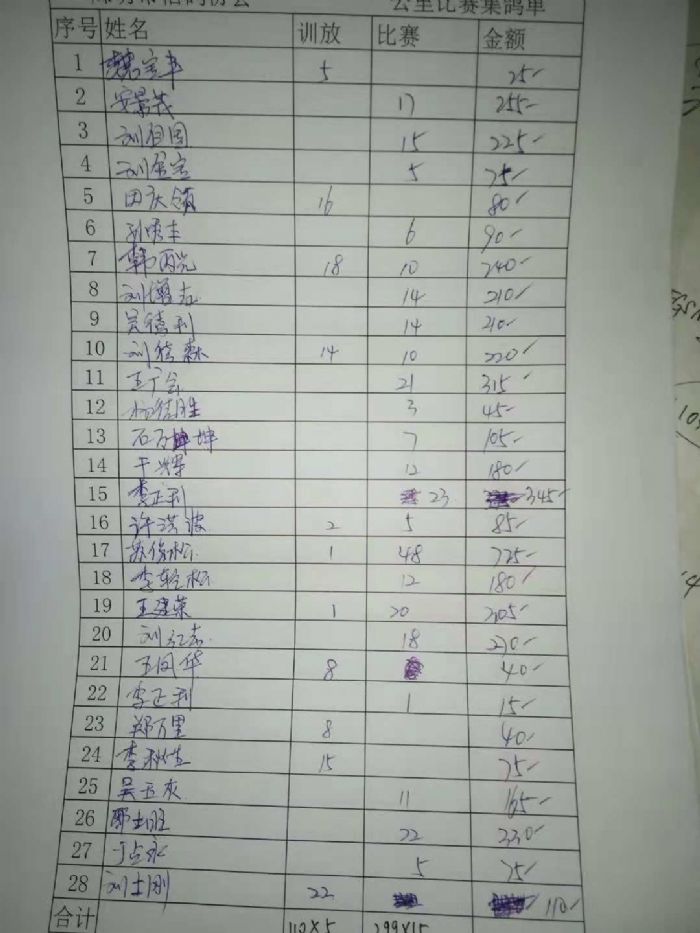 公里比赛集鸽单
序号 姓名 训放 比赛 金额
1 5 25
2 安景茂 17 255
3 刘祖国 15 225
4 刘金宝 5 75
5 田庆领 16 80
6 6 90
7 韩丙亮 18 10 240
8 刘增志 14 210
9 吴德利 14 210
10 刘德森 14 10 220
11 王广会 21 315
12 杨德胜 3 45
13 石万坤 7 105
14 于辉 12 180
15 李正利 23 345
16 许洪波 2 5 85
17 苏俊松 1 48 725
18 李轻松 12 180
19 王建荣 1 20 305
20 刘红志 18 270
21 王凤华 8 40
22 李正利 1 15
23 郑万里 8 40
24 李秋生 15 75
25 吴玉庆 11 165
26 22 330
27 于占永 5 75
28 刘士刚 22 110
合计 110×5 299×15